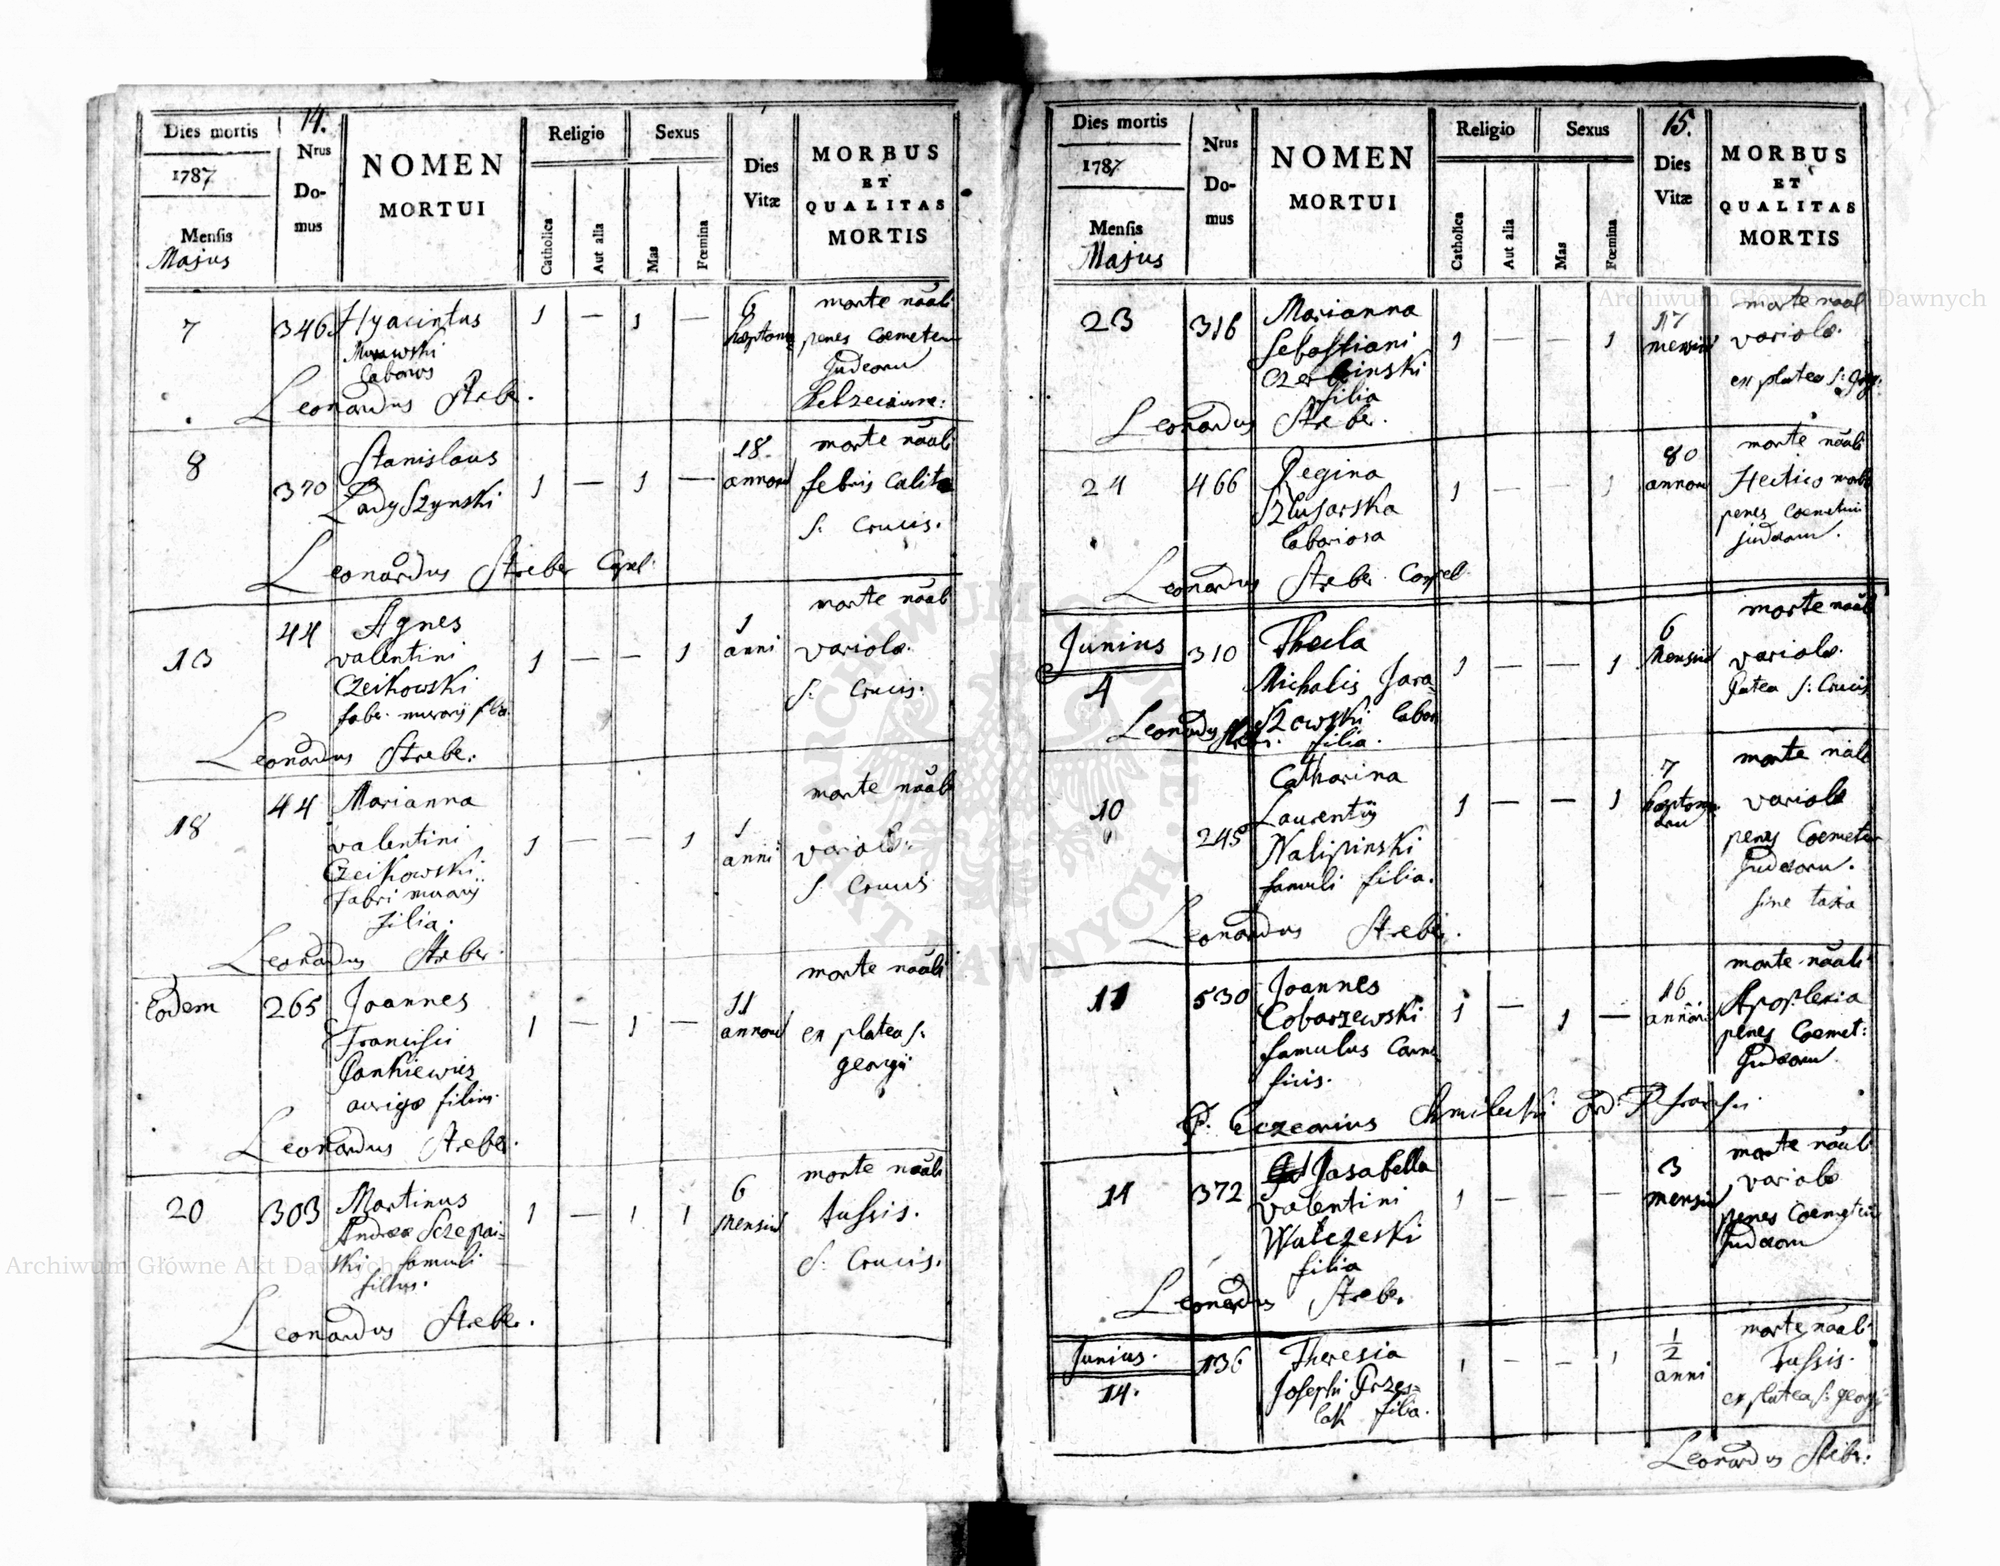 14.
Dies mortis
1787
Mensis
Majus
Nrus
Do-
mus
NOMEN
MORTUI
Religio
Catholica
Aut alia
Sexus
Mas
Fœmina
Dies
Vitæ
MORBUS
ET
QUALITAS
MORTIS
7
346
Hyacintus
Murawski
laborios
1 — 1 —
6
morte nāāli
penes Coemeter
Judeoru
Leonardus Streber.
8
370
Stanislaus
Ladyszynski
1 — 1 —
18
annoru
morte nāāli
febris Calita
S. Crucis.
Leonardus Streber Capel.
13
44
Agnes
valentini
Czeikowski
fabr. murarij filia
1 — — 1
1
anni
morte nāāli
variolæ.
S. Crucis.
Leonardus Streber.
18
44
Marianna
valentini
Czeikowski
fabri murarij
filia.
1 — — 1
1
anni
morte nāāli
variolæ.
S. Crucis
Leonardus Streber.
Eodem
265
Joannes
Francisci
Pankiewicz
aurigæ filius.
1 — 1 —
11
annoru
morte nāāli
ex platea S.
georgii
Leonardus Streber.
20
303
Martinus
Andreæ Sczepai-
ski famuli
filius.
1 — 1 1
6
Mensiu
morte nāāli
tussis.
S. Crucis.
Leonardus Streber.
15.
Dies mortis
1787
Mensis
Majus
Nrus
Do-
mus
NOMEN
MORTUI
Religio
Catholica
Aut alia
Sexus
Mas
Fœmina
Dies
Vitæ
MORBUS
ET
QUALITAS
MORTIS
23
316
Marianna
Sebastiani
Czerbinski
filia
1 — — 1
17
mensiu
morte nāāl
variolæ.
ex platea S: Geg:
Leonardus Streber.
24
466
Regina
Szlusarska
laboriosa
1 — — 1
80
annoru
morte nāāli
Hectico morbo
penes Coemeteriu
judæoru.
Leonardus Streber Cappel.
Junius
4
310
Thecla
Michalis Jara-
szowski labor
filia.
1 — — 1
6
Mensiu
morte nāāl
variolæ.
Platea S: Crucis
Leonardus Streber.
10
245
Catharina
Laurentij
Nalipinski
famuli filia.
1 — — 1
7
morte nāāl
variolæ
penes Coemeter
Judæoru.
sine taxa
Leonardus Streber.
11
530
Joannes
Cobarzewski
famulus Carni
ficis.
1 — 1 —
16
annoru
morte nāāli
Apoplexia
penes Coemet:
Judæoru.
P. Eczearius Chmilecki Ord: P. Francisci
11
372
Jasabella
valentini
Walczeski
filia
1 — — —
3
mensiu
morte nāāli
variolæ
penes Coemeteriu
Judæoru
Leonardus Streber.
Junius.
14.
136
Theresia
Josephi Grzes-
lak filia.
1 — — 1
1/2
anni
morte nāāli
Tussis.
ex platea S: georgi
Leonardus Streber.
Archiwum Główne Akt Dawnych
Archiwum Główne Akt Dawnych
ARCHIWUM GŁÓWNE
AKT DAWNYCH